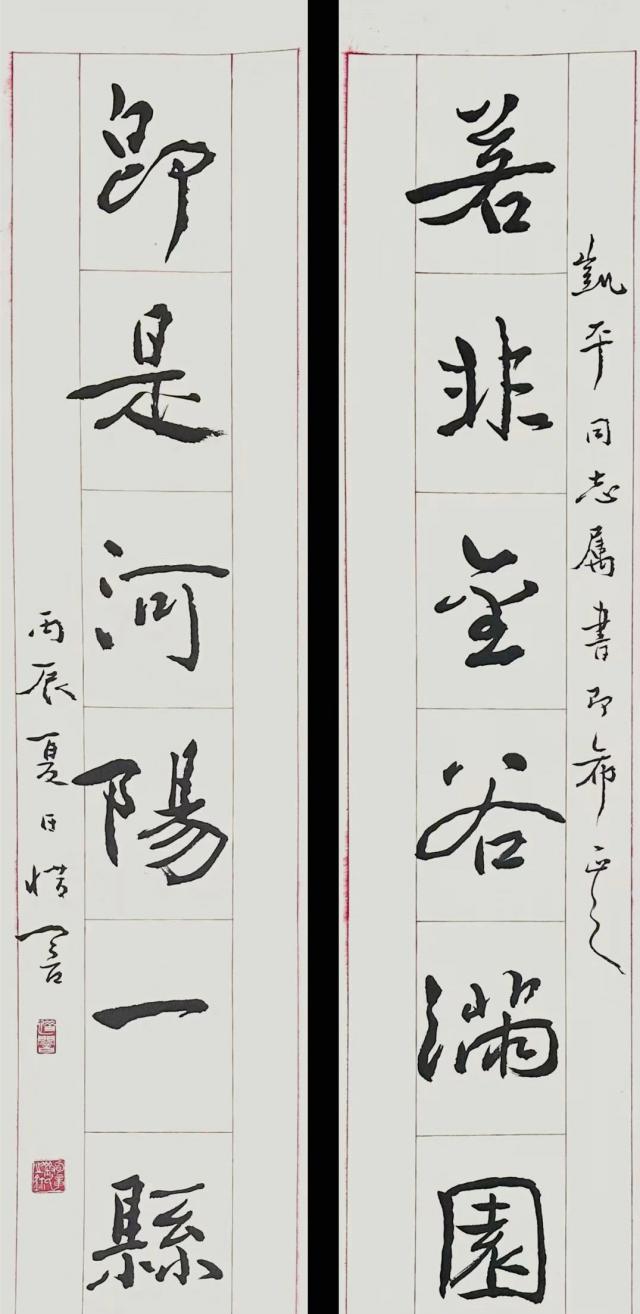 凱平同志属書即希正之
若非金谷滿園
即是河陽一縣
丙辰夏日惜